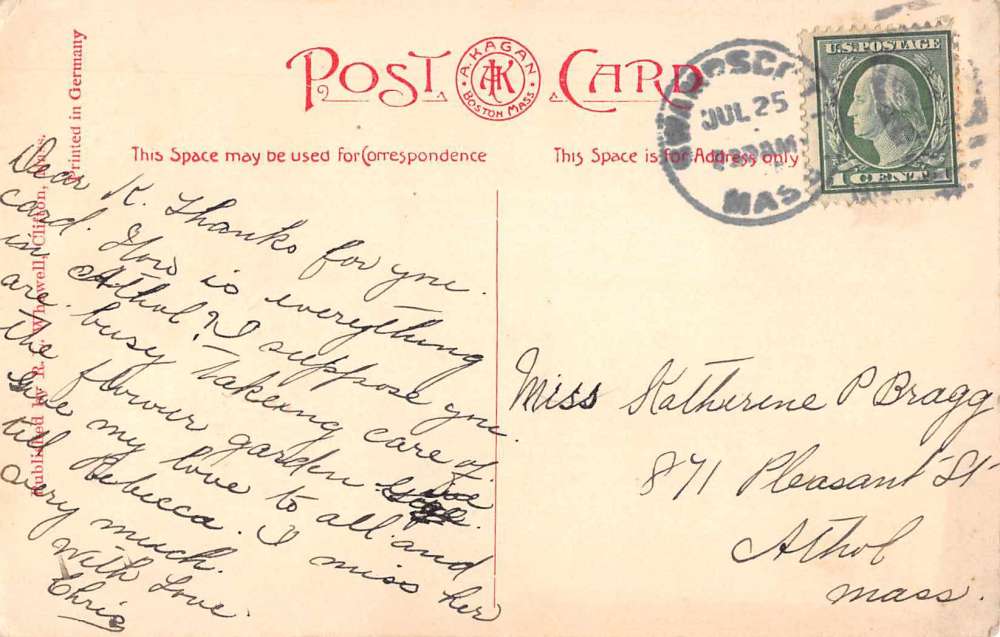 POST CARD
A. KAGAN
AK
BOSTON MASS
This Space may be used for Correspondence
This Space is for Address only
U.S. POSTAGE
1 CENT 1
SWAMPSCOTT
JUL 25
AM
MASS
Printed in Germany
Published by R. L. Whowell, Clifton, Mass.
Dear K. Thanks for your
card. How is everything
in Athol? I suppose you
are busy takeing care of
the flower garden
Give my love to all and
tell Rebecca. I miss her
very much.
With Love
Chris
Miss Katherine P Bragg
871 Pleasant St
Athol
Mass.